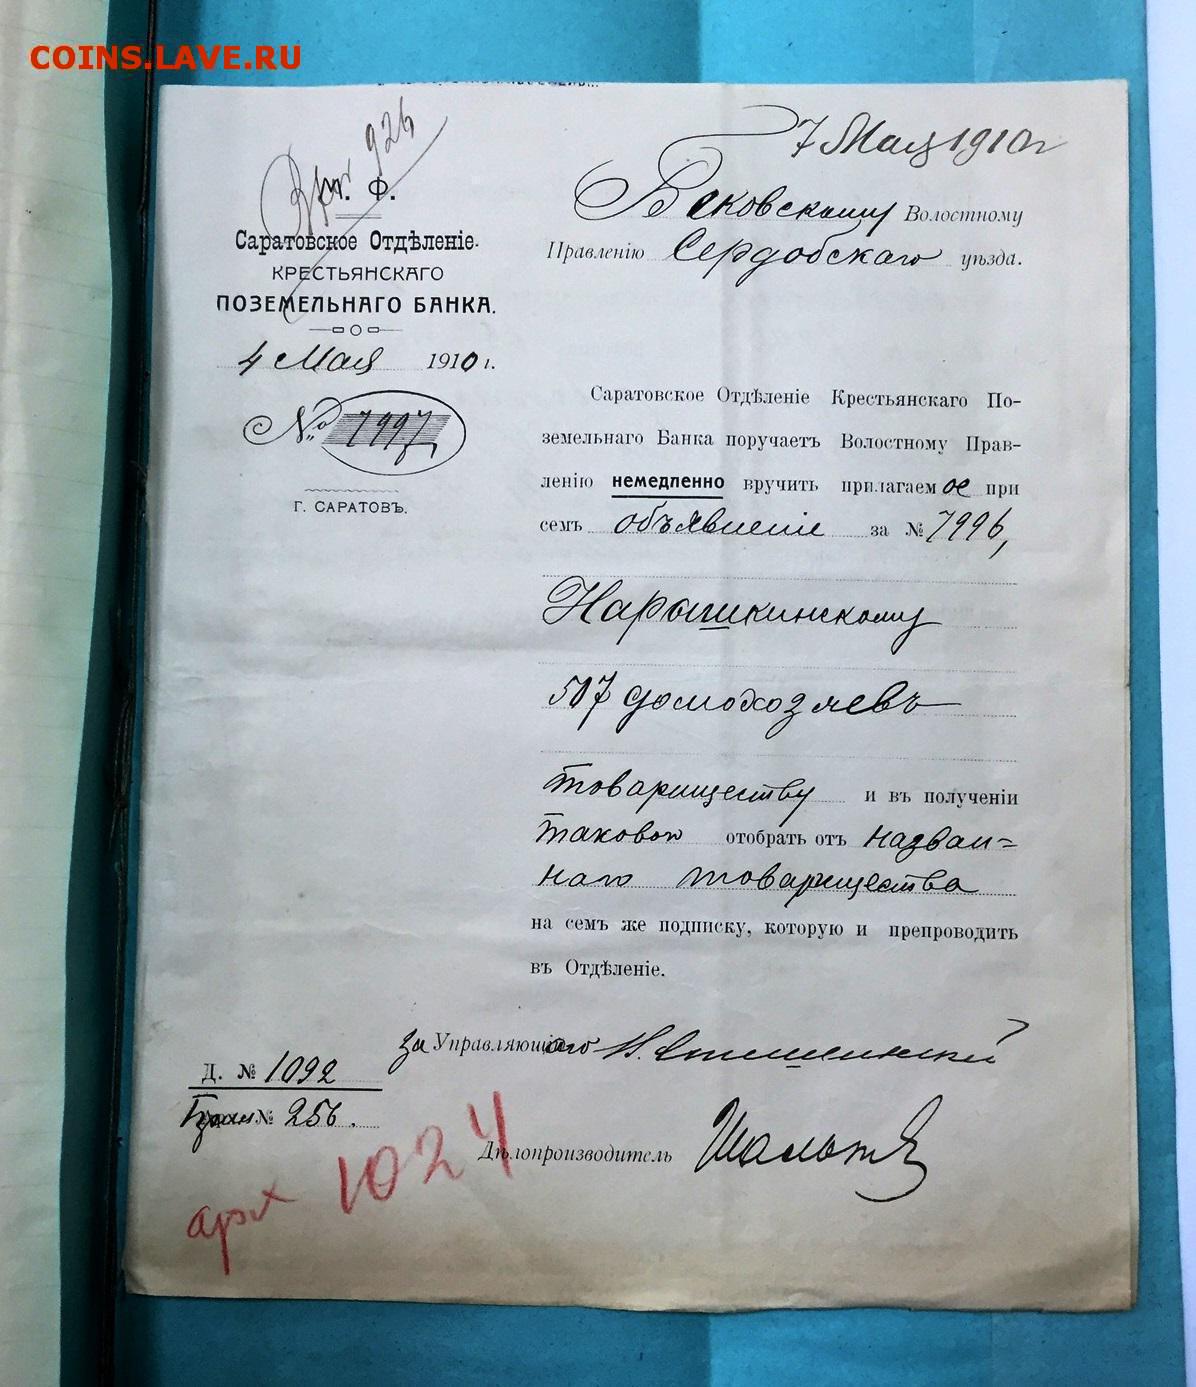 COINS.LAVE.RU
926
М. Ф.
Саратовское Отдѣленіе
КРЕСТЬЯНСКАГО
ПОЗЕМЕЛЬНАГО БАНКА.
4 Мая 1910 г.
№ 7997
Г. САРАТОВЪ.
7 Мая 1910 г
Бековскому Волостному
Правленію Сердобскаго уѣзда.
Саратовское Отдѣленіе Крестьянскаго По-
земельнаго Банка поручаетъ Волостному Прав-
ленію немедленно вручить прилагаемое при
семъ объявленіе за № 7996,
Нарышкинскому
507 домохозяевъ
товариществу и въ полученіи
таковог отобрать отъ назван=
наго товарищества
на семъ же подписку, которую и препроводить
въ Отдѣленіе.
За Управляющаго
Д. № 1092
№ 256.
Дѣлопроизводитель
арх 1024